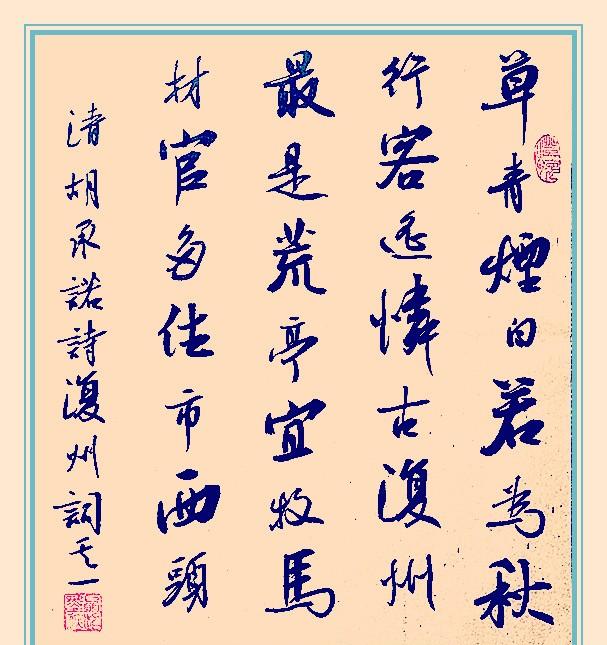 草青煙白若為秋
行客遙憐古復州
最是荒亭宜牧馬
材官多住市西頭
清胡承諾詩復州詞之一